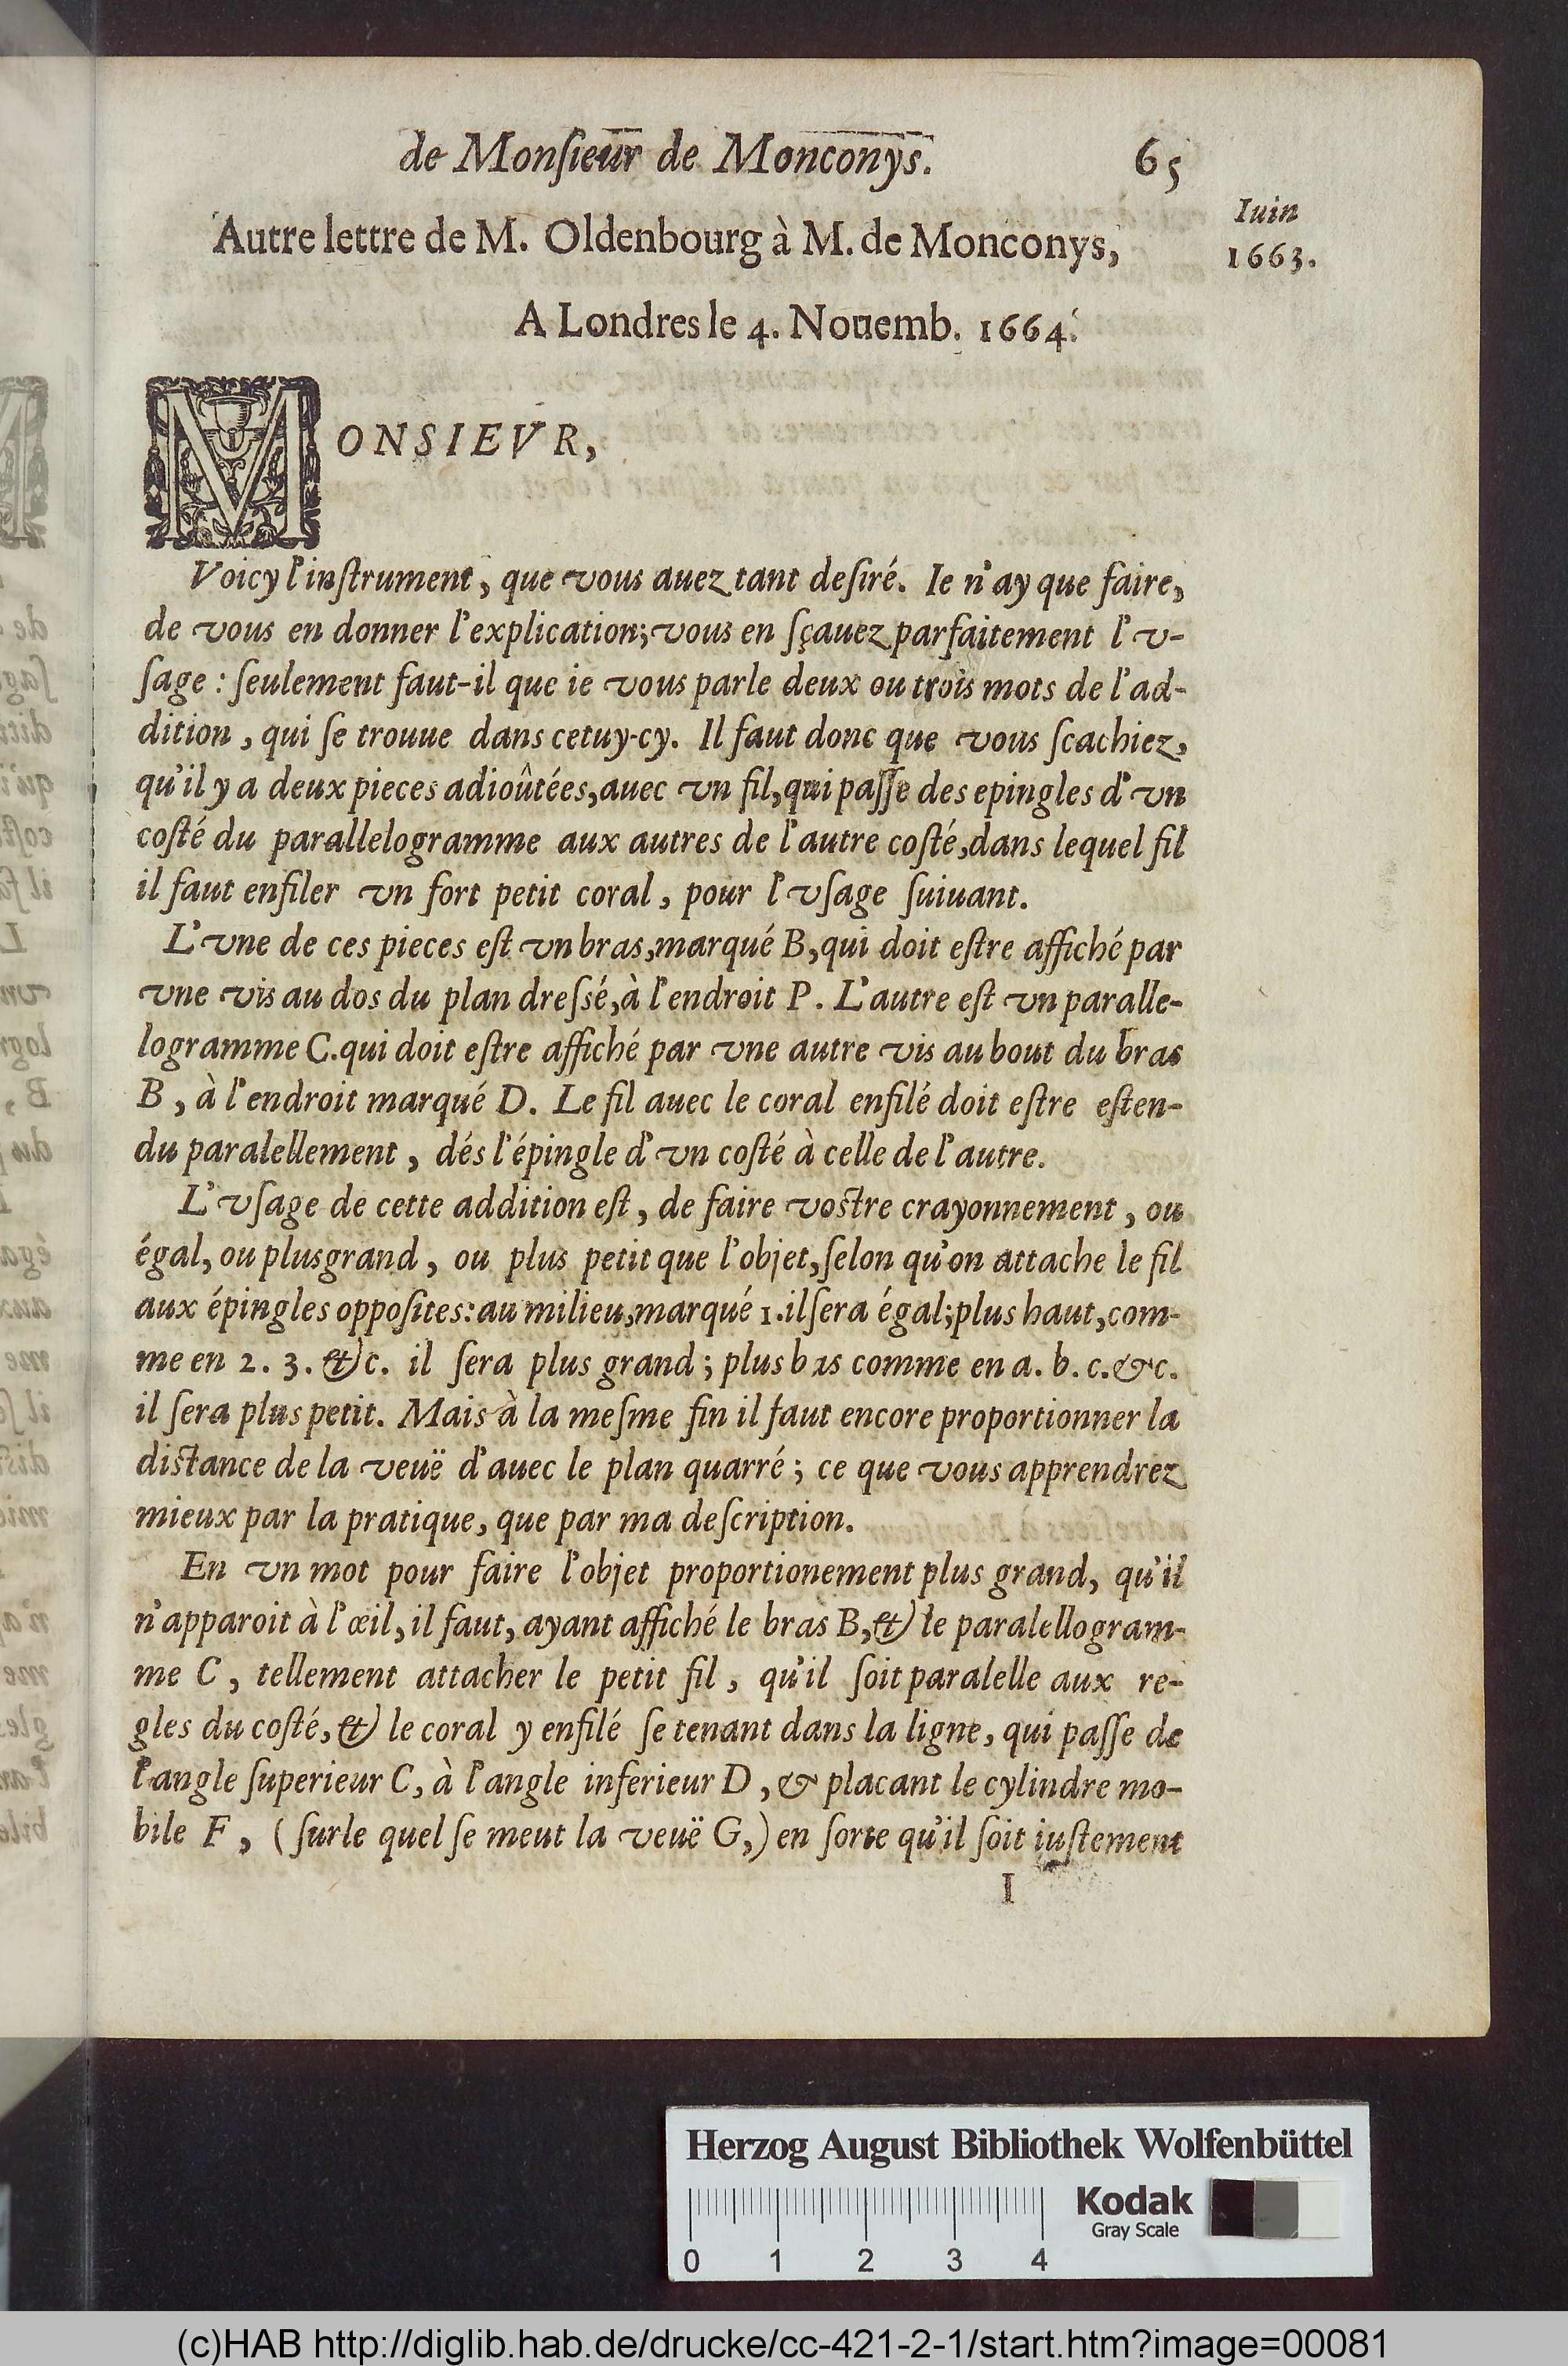 de Monſieur de Monconys.
65
Iuin
1663.
Autre lettre de M. Oldenbourg à M. de Monconys,
A Londres le 4. Nouemb. 1664.
MONSIEVR,
Voicy l'inſtrument, que vous auez tant deſiré. Ie n'ay que faire,
de vous en donner l'explication; vous en ſçauez parfaitement l'v-
ſage : ſeulement faut-il que ie vous parle deux ou trois mots de l'ad-
dition, qui ſe trouue dans cetuy-cy. Il faut donc que vous ſcachiez,
qu'il y a deux pieces adioûtées, auec vn fil, qui paſſe des epingles d'vn
coſté du parallelogramme aux autres de l'autre coſté, dans lequel fil
il faut enfiler vn fort petit coral, pour l'vſage ſuiuant.
L'vne de ces pieces eſt vn bras, marqué B, qui doit eſtre affiché par
vne vis au dos du plan dreſsé, à l'endroit P. L'autre eſt vn paralle-
logramme C. qui doit eſtre affiché par vne autre vis au bout du bras
B, à l'endroit marqué D. Le fil auec le coral enfilé doit eſtre eſten-
du paralellement, dés l'épingle d'vn coſté à celle de l'autre.
L'vſage de cette addition eſt, de faire voſtre crayonnement, ou
égal, ou plus grand, ou plus petit que l'objet, ſelon qu'on attache le fil
aux épingles oppoſites: au milieu, marqué 1. il ſera égal; plus haut, com-
me en 2. 3. &c. il ſera plus grand; plus bas comme en a. b. c. &c.
il ſera plus petit. Mais à la meſme fin il faut encore proportionner la
diſtance de la veuë d'auec le plan quarré; ce que vous apprendrez
mieux par la pratique, que par ma deſcription.
En vn mot pour faire l'objet proportionement plus grand, qu'il
n'apparoit à l'œil, il faut, ayant affiché le bras B, & le paralellogram-
me C, tellement attacher le petit fil, qu'il ſoit paralelle aux re-
gles du coſté, & le coral y enfilé ſe tenant dans la ligne, qui paſſe de
l'angle ſuperieur C, à l'angle inferieur D, & placant le cylindre mo-
bile F, (ſur le quel ſe meut la veuë G,) en ſorte qu'il ſoit iuſtement
I
Herzog August Bibliothek Wolfenbüttel
Kodak
Gray Scale
0 1 2 3 4
(c)HAB http://diglib.hab.de/drucke/cc-421-2-1/start.htm?image=00081